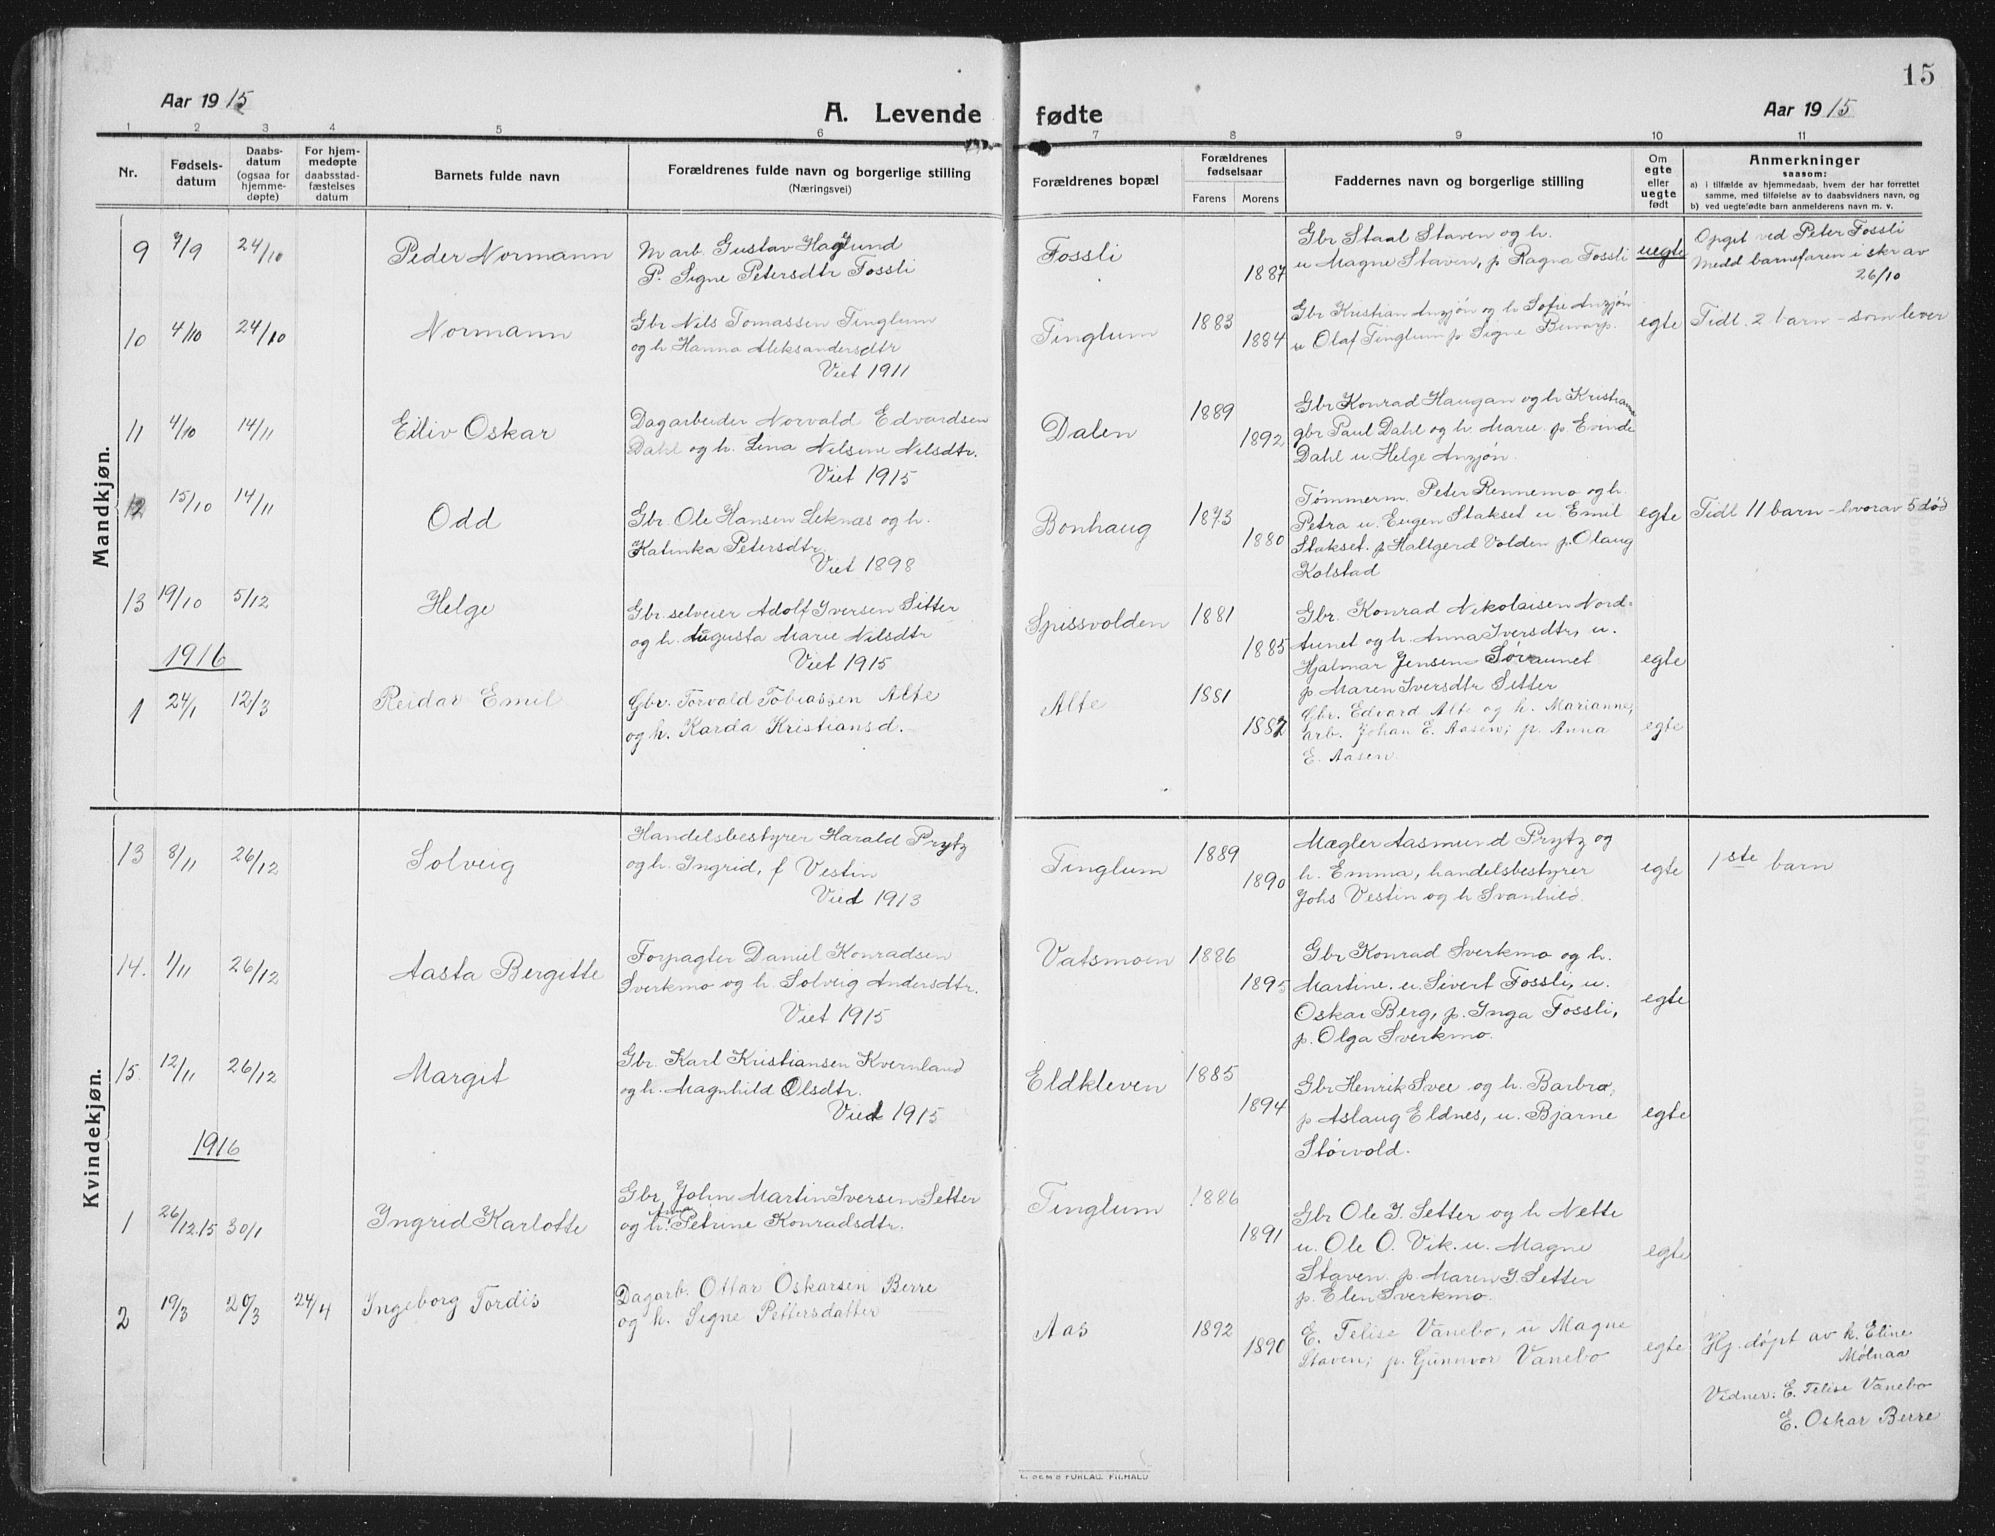 15
Aar 1915
A. Levende fødte
Aar 1915
1 2 3 4 5 6 7 8 9 10 11
Nr.
Fødsels-
datum
Daabs-
datum
(ogsaa for
hjemme-
døpte)
For hjem-
medøpte
daabsstad-
fæstelses
datum
Barnets fulde navn
Forældrenes fulde navn og borgerlige stilling
(Næringsvei)
Forældrenes bopæl
Forældrenes
fødselsaar
Farens Morens
Faddernes navn og borgerlige stilling
Om
egte
eller
uegte
født
Anmerkninger
saasom:
a) i tilfælde av hjemmedaab, hvem der har forrettet
samme, med tilføielse av to daabsvidners navn, og
b) ved uegtefødte barn anmelderens navn m. v.
Mandkjøn.
9 7/9 24/10 Peder Normann
M arb. Gustav Haglund
P. Signe Petersdtr Fossli
Fossli
1887
Gbr Staal Staven og h.
u Magne Staven, p Ragna Fossli
uegte
Opgit ved Peter Fossli
Medd barnefaren i skr av
26/10
10 4/10 24/10 Normann
Gbr Nils Tomassen Tinglum
og h Hanna Aleksandersdtr
Viet 1911
Tinglum
1883
1884
Gbr Kristian Anzjøn og h Sofie Anzjøn
u Olaf Tinglum p Signe
egte
Tidl. 2 barn - som lever
11 4/10 14/11 Eiliv Oskar
Dagarbeider Norvald Edvardsen
Dahl og h. Lina Nilsine Nilsdtr.
Viet 1915
Dalen
1889
1892
Gbr Konrad Haugan og h Kristianna
gbr Paul Dahl og h. Marie. p Evinde
Dahl u. Helge Anzjøn.
12 15/10 14/11 Odd
Gbr. Ole Hansen Leknæs og h.
Katinka Petersdtr
Viet 1898
Bonhaug
1873
1880
Tømmerm. Peter Rennemo og h.
Petra u. Eugen Stakset u Emil
Stakset. p Hallgerd Volden p. Olaug
Kolstad
egte
Tidl 11 barn - hvorav 5 død
13 19/10 5/12 Helge
Gbr. selveier Adolf Iversen Sitter
og h. Augusta Marie Nilsdtr
Viet 1915
Spissvolden
1881
1885
Gbr. Konrad Nikolaisen Nord-
aunet og h. Anna Iversdtr, u.
Hjalmar Jensen Søraunet
p Maren Iversdtr Sitter
egte
1916
1 24/1 12/3 Reidar Emil
Gbr. Torvald Tobiassen Alte
og h. Karda Kristiansd.
Alte
1881
1887
Gbr. Edvard Alte og h. Marianne;
arb. Johan E. Aasen; p. Anna
E. Aasen
egte
Kvindekjøn.
13 8/11 26/12 Solveig
Handelsbestyrer Harald Prytz
og h. Ingrid, f Vestin
Viet 1913
Tinglum
1889
1890
Mægler Aasmund Prytz og
h. Emma, handelsbestyrer
Johs Vestin og h Svanhild.
egte
1ste barn
14. 1/11 26/12 Aasta Bergitte
Forpagter Daniel Konradsen
Sverkmo og h. Solveig Andersdtr.
Viet 1915
Vatsmoen
1886
1895
Gbr Konrad Sverkmo og h.
Martine. u. Sivert Fossli, u.
Oskar Berg, p. Inga Fossli,
p. Olga Sverkmo.
egte
15. 12/11 26/12 Margit
Gbr Karl Kristiansen Kvernland
og h. Magnhild Olsdtr.
Viet 1915
Eldkleven
1885
1894
Gbr Henrik Svee og h. Barbra,
p Aslaug Eldnes, u. Bjarne
Størvold.
egte
1916
1 26/12.15 30/1 Ingrid Karlotte
Gbr. John Martin Iversen Setter
og h. Petrine Konradsdtr.
Tinglum
1886
1891
Gbr Ole I. Setter og h Nette
u. Ole O. Vik. u. Magne
Staven p. Maren I. Setter
p. Elen Sverkmo.
egte
2 19/3 20/3 24/4 Ingeborg Tordis
Dagarb. Ottar Oskarsen Berre
og h. Signe Pettersdatter
Aas
1892
1890
E. Telise Vanebo, u Magne
Staven; p. Gunnvor Vanebo
egte
Hj. døpt av k. Eline
Mølnaa
Vidner: E. Telise Vanebo
E. Oskar Berre